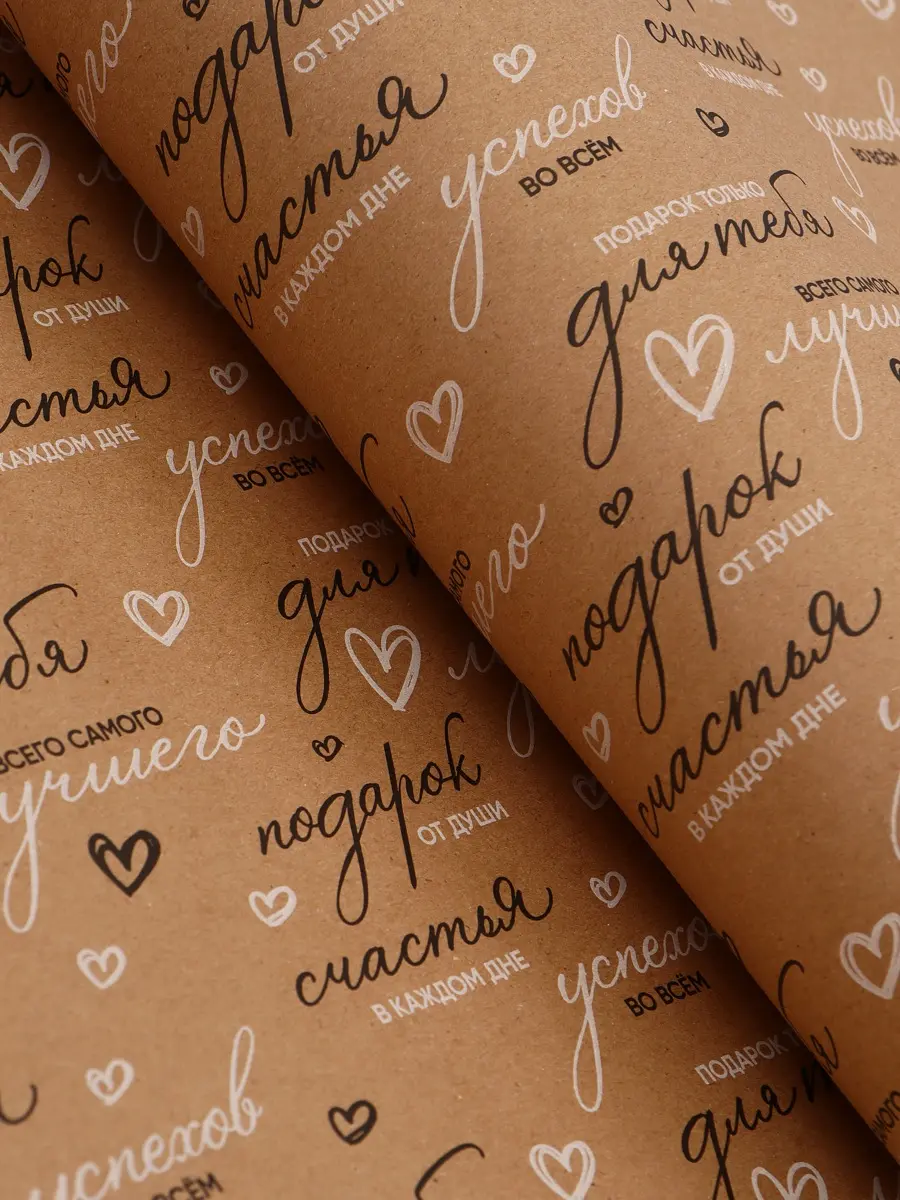 подарок
ОТ ДУШИ
счастья
В КАЖДОМ ДНЕ
успехов
ВО ВСЁМ
счастья
В КАЖДОМ ДНЕ
успехов
ВО ВСЁМ
ПОДАРОК ТОЛЬКО
для тебя
ВСЕГО САМОГО
подарок
ОТ ДУШИ
счастья
В КАЖДОМ ДНЕ
ОТ ДУШИ
КАЖДОМ ДНЕ
ВО ВСЁМ
ПОДАРОК
для
ВСЕГО САМОГО
лучшего
подарок
ОТ ДУШИ
счастья
В КАЖДОМ ДНЕ
ВО ВСЁМ
успехов
ПОДАРОК
для